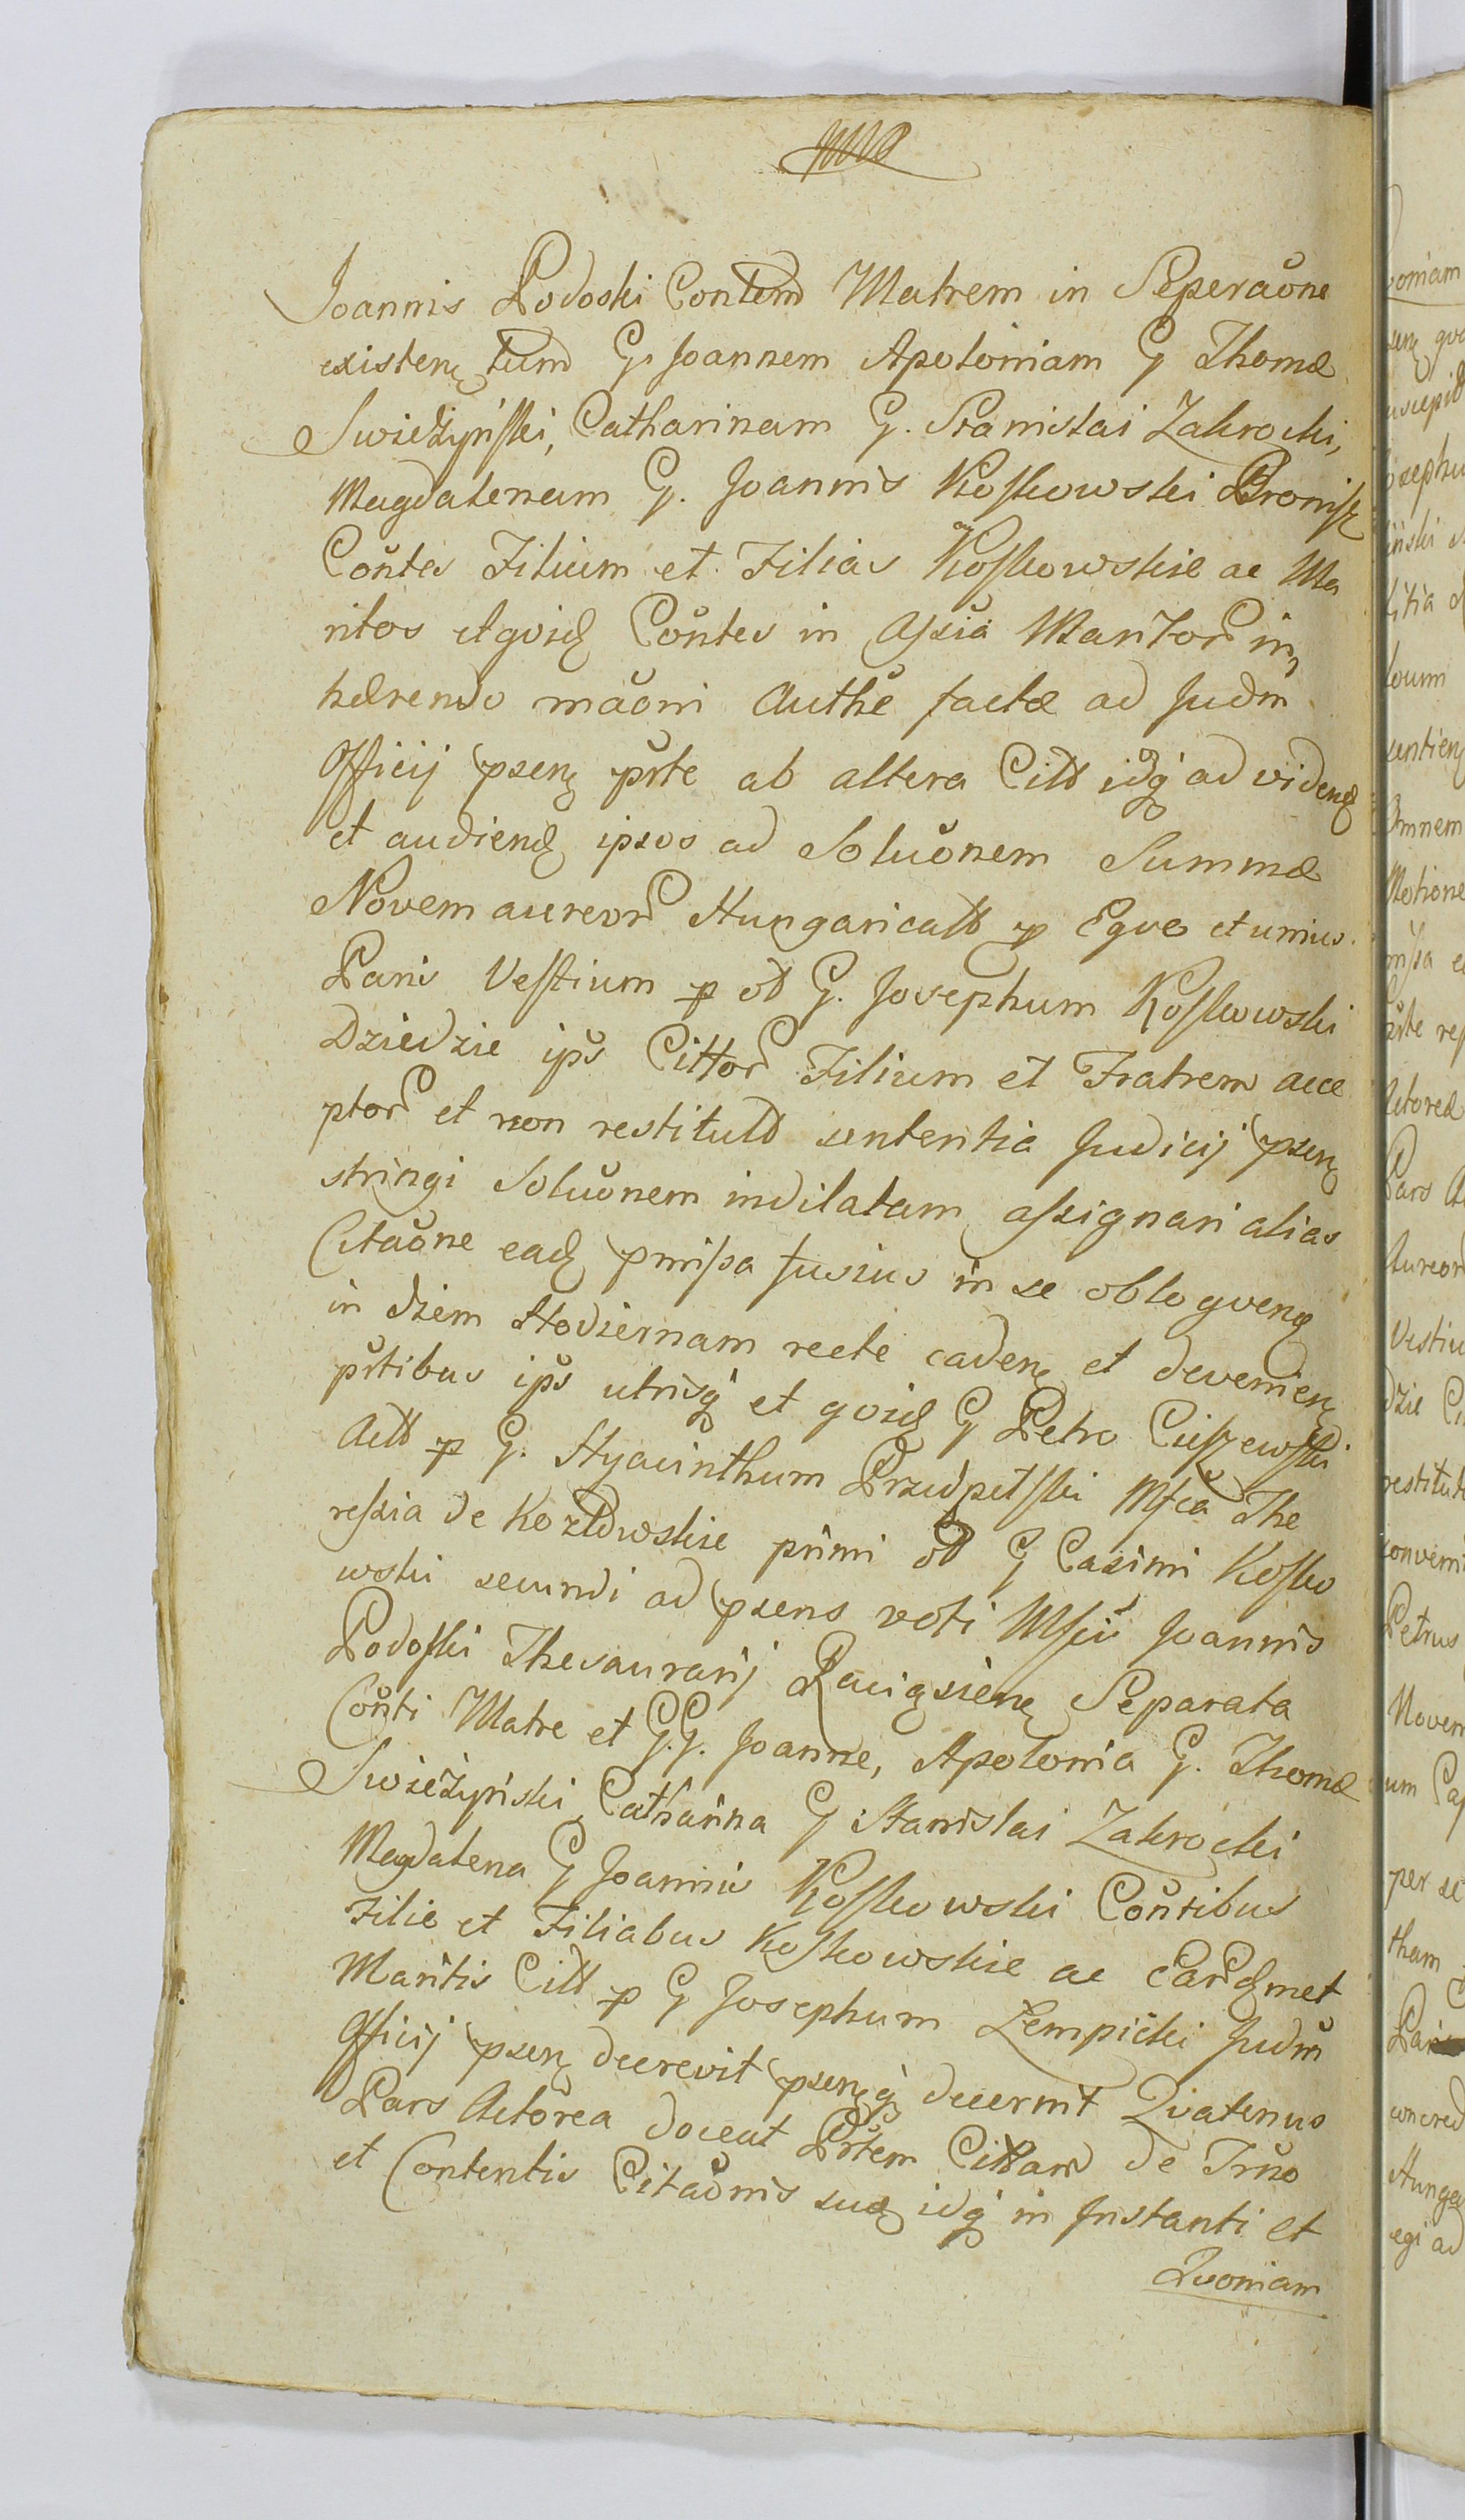 Joannis Podoski Contem Matrem in Seperaone
existen tum G. Joannem Apoloniam G Thomæ
Swieżyński, Catharinam G. Stanislai Zakrocki,
Magdalenam G. Joannis Koskowski Bronisz
Contes Filium et Filias Koskowskie ac Ma
ritos et qvid Contes in Assia Maritor in
hærendo maoni Authe factæ ad Judm
Officij psen prte ab altera Citt idq ad videnđ
et audiend ipsos ad Soluonem Summæ
Novem aureor Hungaricall p Eqvo et unius
Paris Vestium p ol G. Josephum Koskowski
Dziedzic ips Cittor Filium et Fratrem acce
ptor et non restitutt sententia Judicij psen
stringi Soluonem indilatam assignari alias
Citaone ead pmissa fusius in se obloqven
in diem Hodiernam recte caden et devenien
prtibus ips utrisq et qvid G Petro Ciszewski
Actt p G. Hyacinthum Przedpełski Mfca The
ressia de Kozłowskie primi ol G Casimi Kosko
wski secundi ad psens voti Mfci Joannis
Podoski Thesaurarij Raciąsien Separata
Conti Matre et G.G. Joanne, Apolonia G. Thomæ
Swieżyński, Catharina G Stanislai Zakrocki
Magdalena G Joannis Koskowski Contibus
Filio et Filiabus Koskowskie ac earqmet
Maritis Citt p G Josephum Lempicki Judm
Officij psen decrevit psenq decernit Qvatenus
Pars Actorea doceat Prtem Cittam de Trno
et Contentis Citaonis suæ idq in Instanti et
Qvoniam